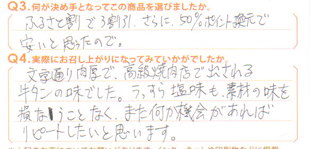 Q3.何が決め手となってこの商品を選びましたか。
ふるさと割で3割引、さらに、50%ポイント還元で
安いと思ったので。
Q4.実際にお召し上がりになってみていかがでしたか。
文字通り肉厚で、高級焼肉店で出される
牛タンの味でした。うっすら塩味も、素材の味を
損なうことなく、また何か機会があれば
リピートしたいと思います。